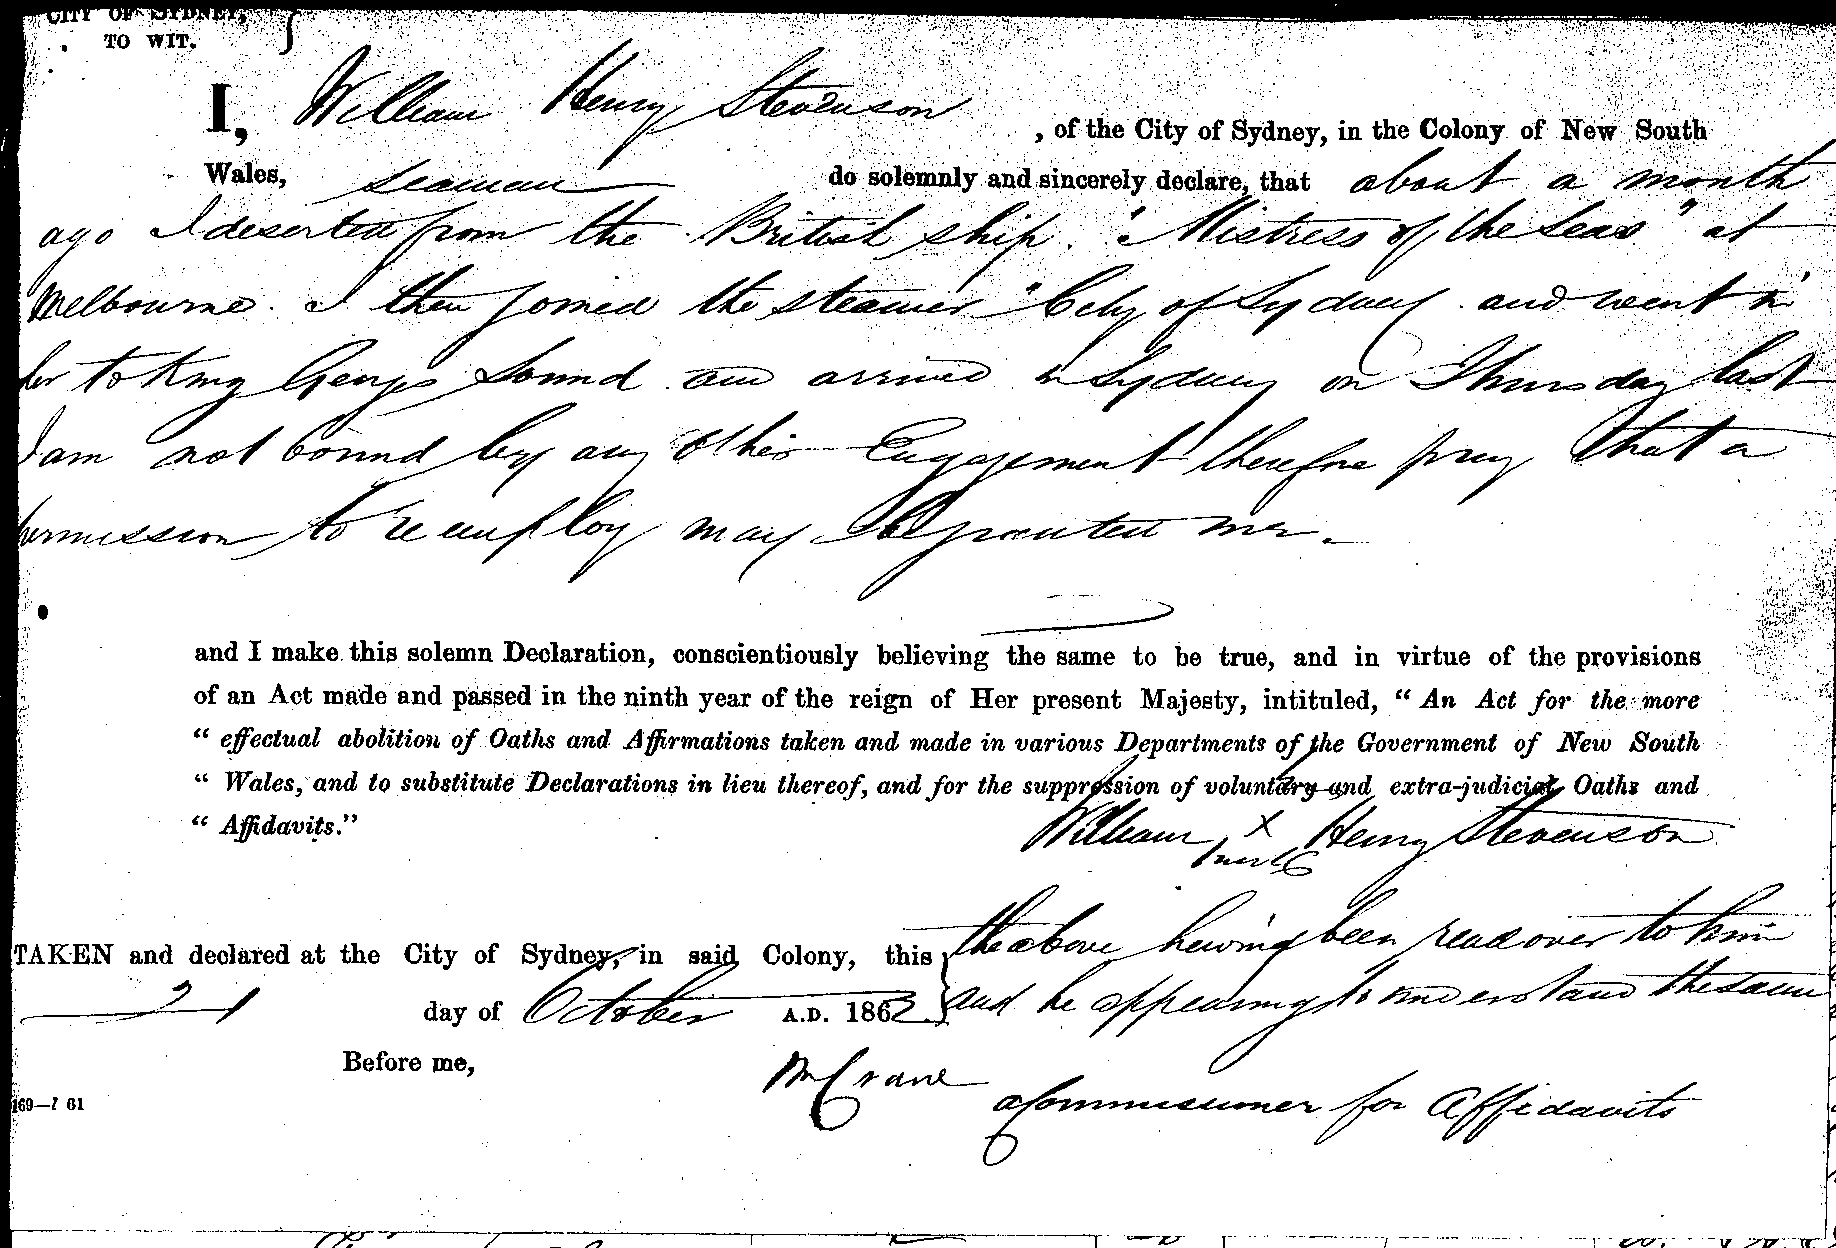 CITY OF SYDNEY,
TO WIT.
I, William Henry Stevenson , of the City of Sydney, in the Colony of New South
Wales, seaman do solemnly and sincerely declare, that about a month
ago I deserted from the British ship "Mistress of the Seas" at
Melbourne. I then joined the steamer "City of Sydney and went in
her to King Georges Sound and arrived in Sydney on Thursday last
I am not bound by any other Engagement therefore pray that a
permission to re employ may be granted me.
and I make this solemn Declaration, conscientiously believing the same to be true, and in virtue of the provisions
of an Act made and passed in the ninth year of the reign of Her present Majesty, intituled, " An Act for the more
" effectual abolition of Oaths and Affirmations taken and made in various Departments of the Government of New South
" Wales, and to substitute Declarations in lieu thereof, and for the suppression of voluntary and extra-judicial Oaths and
" Affidavits."
William X Henry Stevenson
mark
TAKEN and declared at the City of Sydney, in said Colony, this
21 day of October A.D. 1862
the above having been read over to him
and he appearing to understand the same
Before me,
Wm Crane
a Commissioner for Affidavits